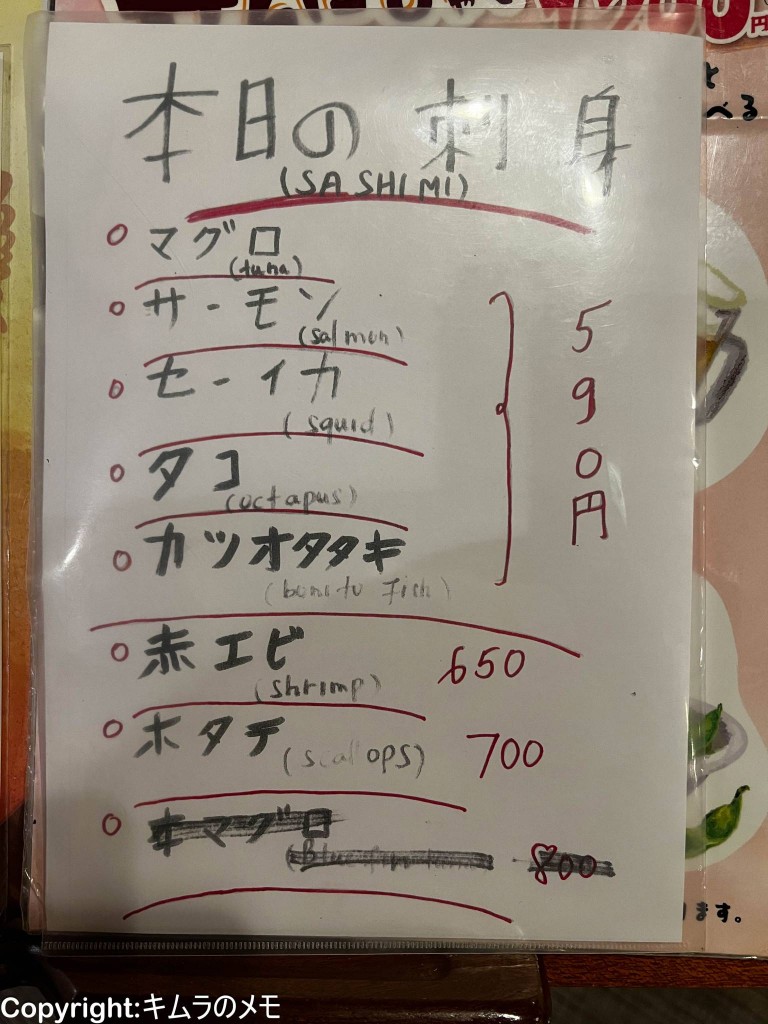 本日の刺身
(SASHIMI)
○ マグロ
(tuna)
○ サーモン
(salmon)
○ セーイカ
(squid)
○ タコ
(octapus)
○ カツオタタキ
(bonito fish)
590円
○ 赤エビ 650
(shrimp)
○ ホタテ (scallops) 700
○ 本マグロ
(Bluefin tuna) 800
べる
ます。
円
Copyright:キムラのメモ